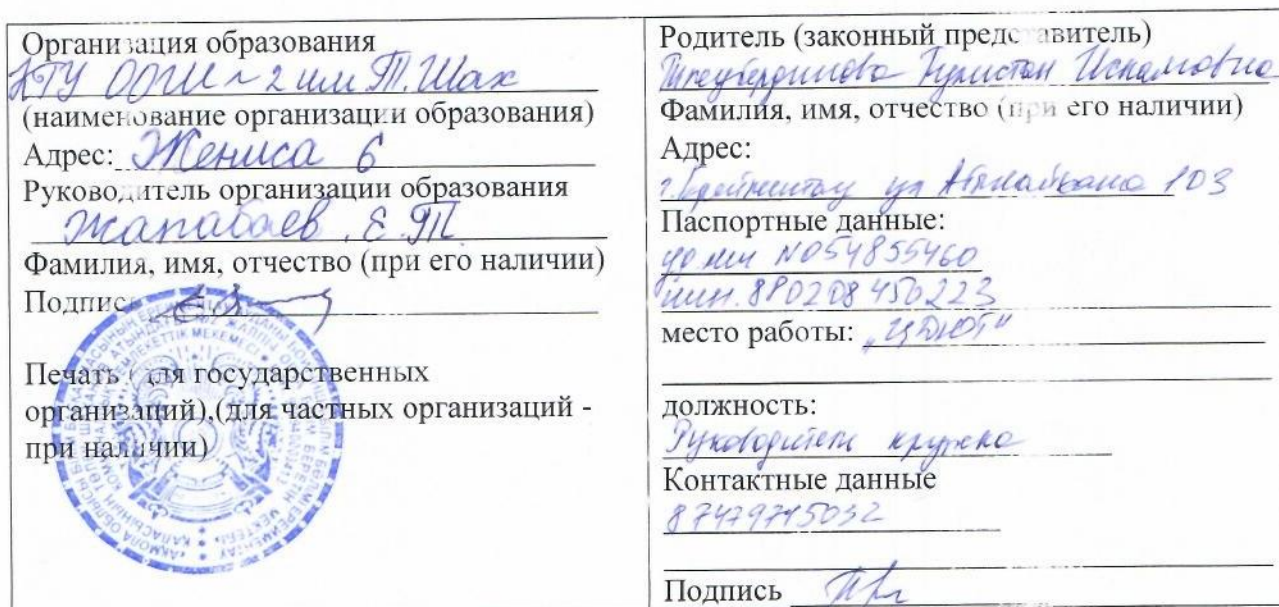 Организация образования
КГУ ООШ №2 им Т. Шах
(наименование организации образования)
Адрес: Жениса 6
Руководитель организации образования
Жапабаев Е.Т
Фамилия, имя, отчество (при его наличии)
Подпись
Печать (для государственных
организаций),(для частных организаций -
при наличии)
Родитель (законный представитель)
Тлеубердинова Гулистан Исламовна
Фамилия, имя, отчество (при его наличии)
Адрес:
г. Ерейментау ул Абылайхана 103
Паспортные данные:
уд.лич N054855460
иин. 880208450223
место работы: "ЦДЮТ"
должность:
Руководитель кружка
Контактные данные
87479745032
Подпись